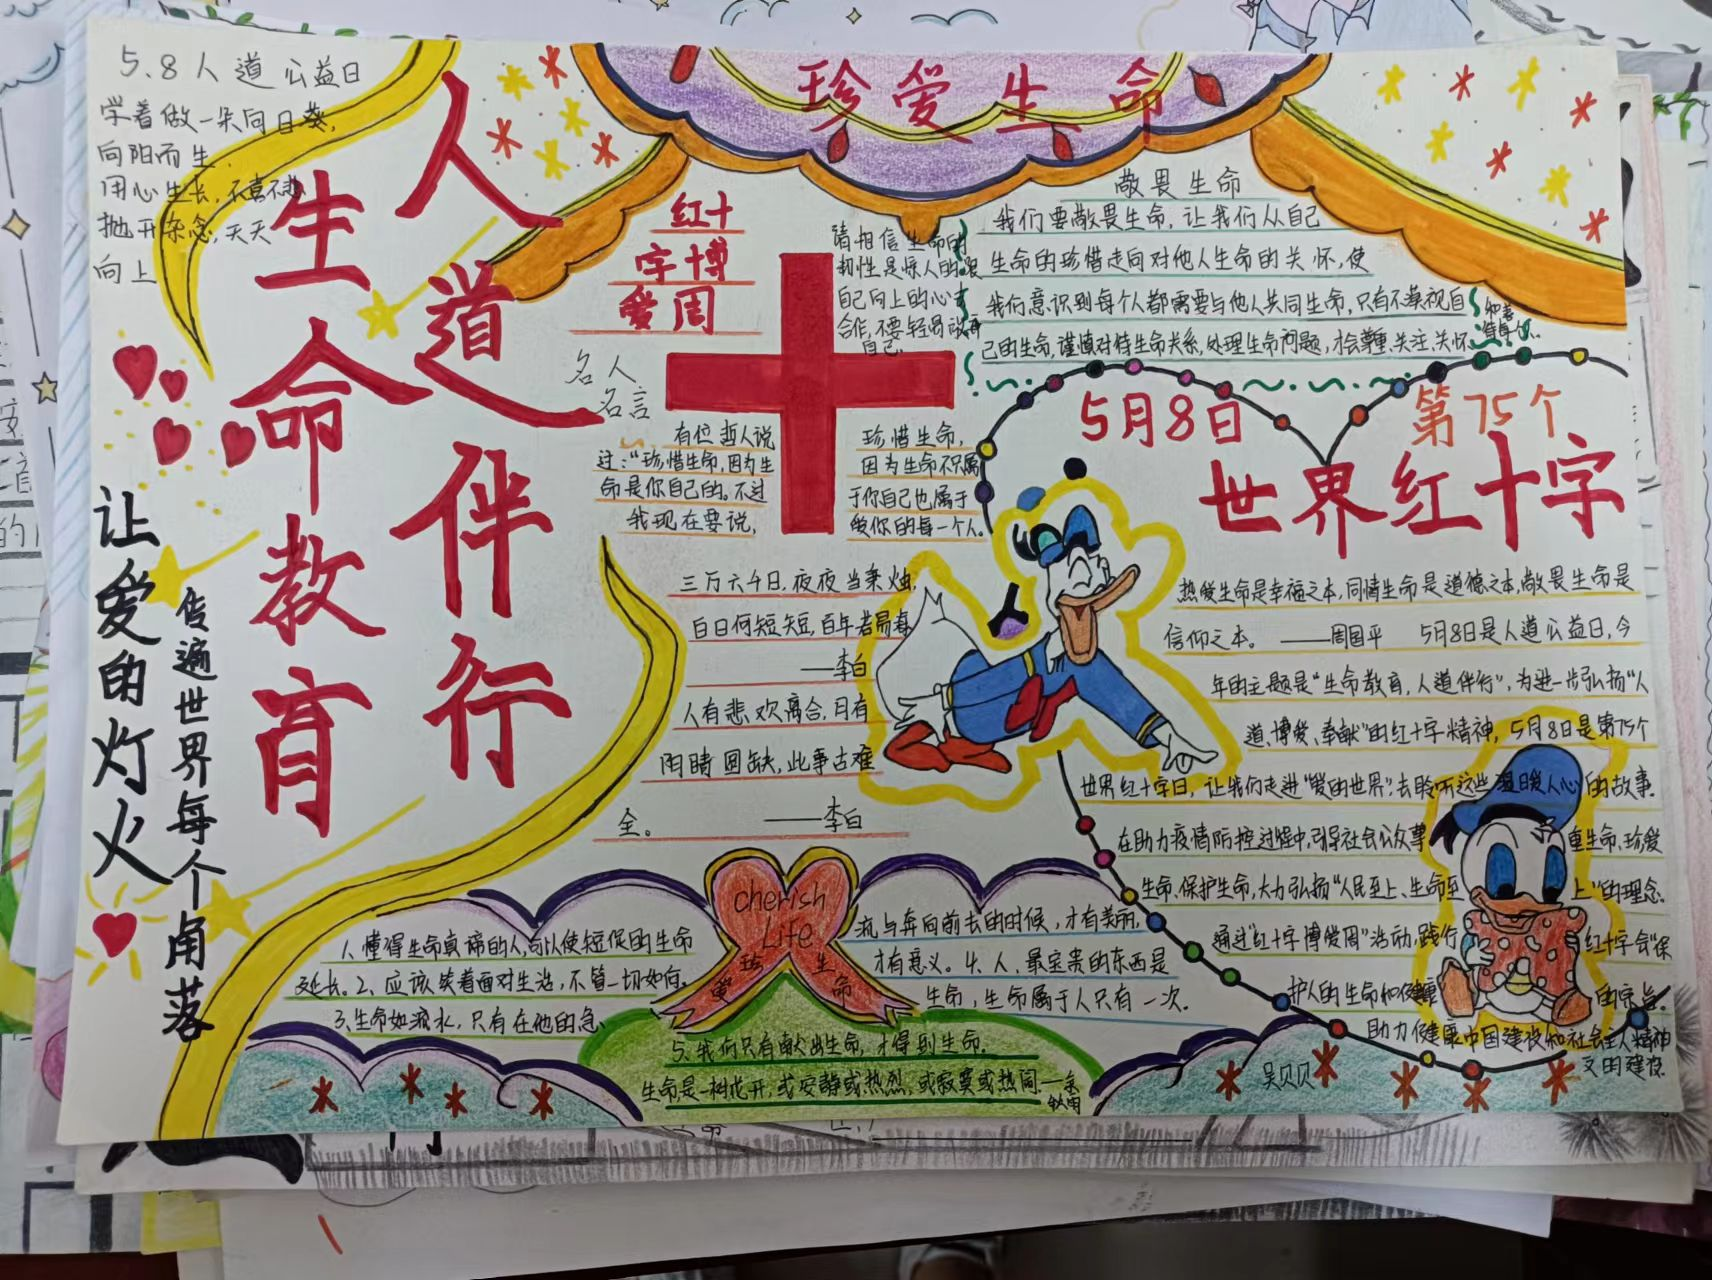 5.8人道公益日
学着做一朵向日葵,
向阳而生.
用心生长,不喜不悲
抛开杂念,天天
向上
人道伴行
生命教育
让爱的灯火
传遍世界每个角落
珍爱生命
红十
字博
爱周
名人
名言
请相信生命的
韧性是惊人的.跟
自己向上的心去
合作,不要轻易放弃
自己.
敬畏生命
我们要敬畏生命,让我们从自己
生命的珍惜走向对他人生命的关怀,使
我们意识到每个人都需要与他人共同生命,只有不漠视自
己的生命,谨慎对待生命关系,处理生命问题,才会尊重.关注.关怀
有位哲人说
过:“珍惜生命,因为生
命是你自己的。不过
我现在要说,
珍惜生命,
因为生命不只属
于你自己也属于
爱你的每一个人。
三万六千日,夜夜当秉烛,
白日何短短,百年若易春
——李白
人有悲欢离合,月有
阴晴圆缺,此事古难
全。 ——李白
5月8日
第75个
世界红十字
热爱生命是幸福之本,同情生命是道德之本,敬畏生命是
信仰之本。 ——周国平 5月8日是人道公益日,今
年的主题是“生命教育,人道伴行”,为进一步弘扬“人
道、博爱、奉献”的红十字精神,5月8日是第75个
世界红十字日,让我们走进“爱的世界”,去聆听这些温暖人心的故事.
在助力疫情防控过程中,引导社会公众尊重生命、珍爱
生命、保护生命,大力弘扬“人民至上、生命至上”的理念.
通过“红十字博爱周”活动,践行红十字会“保
护人的生命和健康”的宗旨.
助力健康中国建设和社会主人精神
文明建设.
cherish
Life
珍爱生命
1.懂得生命真谛的人,可以使短促的生命
延长。2、应该笑着面对生活,不管一切如何.
3.生命如流水,只有在他的急
流与奔向前去的时候,才有美丽,
才有意义。4、人、最宝贵的东西是
生命,生命属于人只有一次.
5.我们只有献出生命,才得到生命.
生命是一树花开,或安静或热烈,或寂寞或热闹.—余
秋雨
吴贝贝